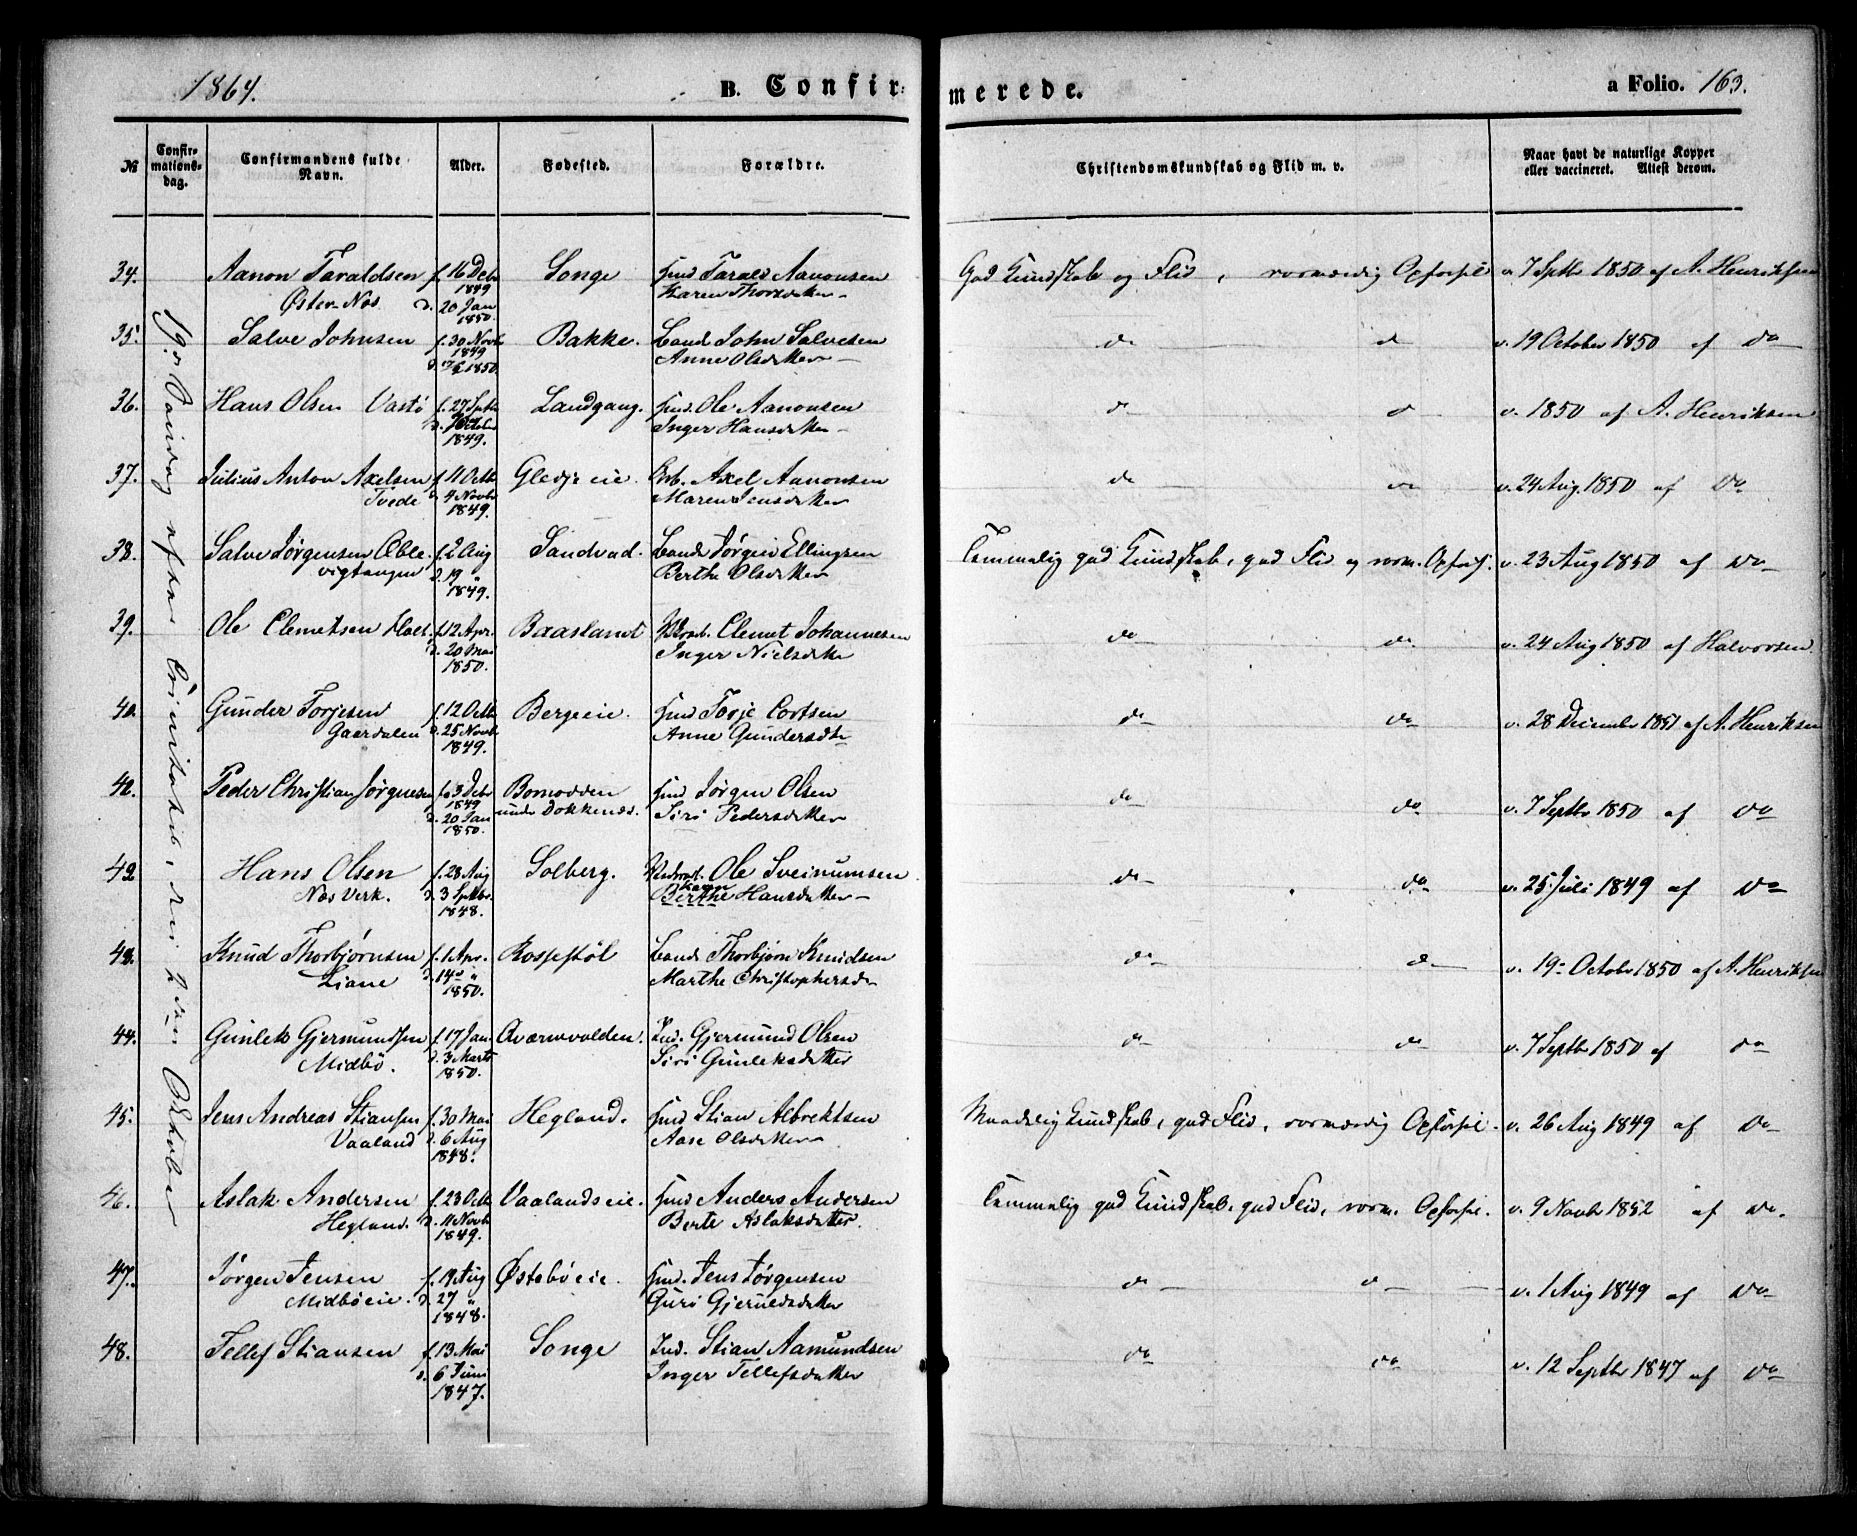 1864.
B. Confirmerede.
a Folio. 163.
№
Confirmationsdag.
Confirmandens fulde Navn.
Alder.
Fødested.
Forældre.
Christendomskundskab og Flid m. v.
Naar havt de naturlige Kopper eller vaccineret. Attest derom.
19de Søndag efter Trinitatis, den 2den Oktober
34. Aanon Taraldsen f. 16 Debr Songe Gmd Tarald Aanonsen God Kundskab og Flid, sømmerdig Opførsel v. 7 Septbr 1850 af A. Henriksen
Øster-Næs. 1849 d. 20 Jan 1850. Karen Thorsdatter
35. Salve Johnsen f. 30 Novbr 1849 Bakke. Baads John Salvesen do do v. 19 October 1850 af do
d. 1850. Anne Olsdatter
36. Hans Olsen Vastø f. 27 Septbr Landgang. Gmd. Ole Aanonsen do do v. 1850 af A. Henriksen
d. October 1849. Inger Hansdatter
37. Julius Anton Axelsen f. 11 Octb Gledjeeie. Arb. Axel Aanonsen do do v. 24 Aug. 1850 af do
Tvede d. 4 Novbr 1849. Maren Jensdatter
38. Salve Jørgensen Æble- f. 2 Aug Sandvad. Baads Jørgen Ellingsen Temmelig god Kundskab, god Flid og Opførs. v. 23 Aug 1850 af do
vigtangen d. 19 " 1849. Berthe Olsdatter
39. Ole Clemetsen f. 12 Apr. Baasland Clemet Johannesen do do v. 24 Aug 1850 af Halvorsen.
d. 20 Mai 1850. Inger Nielsdatter
40. Gunder Torjesen f. 12 Octb Bergeeie. Gmd Torje Cortsen do do v. 28 December 1851 af A. Henriksen
Gaardalen d. 25 Novb 1849. Anne Gundersdtr
42. Peder Christian Jørgensen f. 3 Debr 1849 Bomodden Gmd Jørgen Olsen do do v. 7 Septbr 1850 af do
d. 20 Jan 1850. under Dokkenes. Siri Pedersdatter
42. Hans Olsen f. 28 Aug Solberg. Ole Sveinumsen do do v. 25 Juli 1849 af do
Næs Verk. d. 3 Septbr. 1848. Karen Berthe Hansdatter
42. Knud Thorbjørnsen f. 1 Apr. Rossestøl Baads Thorbjørn Knudsen do do v. 19 Octobr 1850 af A. Henriksen
Liane d. 14 " 1850. Marthe Christophersd
44. Gunlek Gjermundsen f. 17 Jan. Qværnvolden. Ind. Gjermund Olsen do do v. 7 Septbr 1850 af do
Midbö. d. 3 Marts 1850. Siri Gunleksdatter
45. Jens Andreas Stiansen f. 30 Mai Hegland. Gmd Stian Albrektsen Maadelig Kundskab, god Flid, Opførsel. v. 26 Aug 1849 af do
Vaaland d. 6 Aug 1848. Aase Olsdatter
46. Aslak Andersen f. 23 Octb Vaalandseie. Gmd Anders Andersen Temmelig god Kundskab, god Flid, Opførsel. v. 9 Novb 1852 af do.
Hegland. d. 11 Novb 1849. Berte Aslaksdatter.
47. Jørgen Jensen f. 19 Aug Østebøeie. Gmd. Jens Jørgensen do do v. 1 Aug 1849 af do
Midbøeie. d. 27 " 1848. Guri Gjeruldsdatter
48. Tellef Stiansen f. 13 Mai Songe Ind. Stian Aamundsen do do v. 12 Septbr 1847 af do
d. 6 Juni 1847. Inger Tellefsdatter